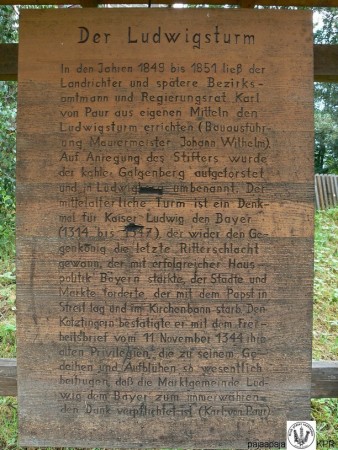 Der Ludwigsturm
In den Jahren 1849 bis 1851 ließ der
Landrichter und spätere Bezirks-
amtmann und Regierungsrat Karl
von Paur aus eigenen Mitteln den
Ludwigsturm errichten (Bauausfüh-
rung Maurermeister Johann Wilhelm).
Auf Anregung des Stifters wurde
der kahle Galgenberg aufgeforstet
und in Ludwigsberg umbenannt. Der
mittelalterliche Turm ist ein Denk-
mal für Kaiser Ludwig den Bayer
(1314 bis 1347), der wider den Ge-
genkönig die letzte Ritterschlacht
gewann, der mit erfolgreicher Haus-
politik Bayern stärkte, der Städte und
Märkte förderte, der mit dem Papst in
Streit lag und im Kirchenbann starb. Den
Kötztingern bestätigte er mit dem Frei-
heitsbrief vom 11 November 1344 ihre
alten Privilegien, die zu seinem Ge-
deihen und Aufblühen so wesentlich
beitrugen, daß die Marktgemeinde Lud-
wig dem Bayer zum immerwähren-
den Dank verpflichtet ist (Karl von Paur)
pajaapaja
KPR